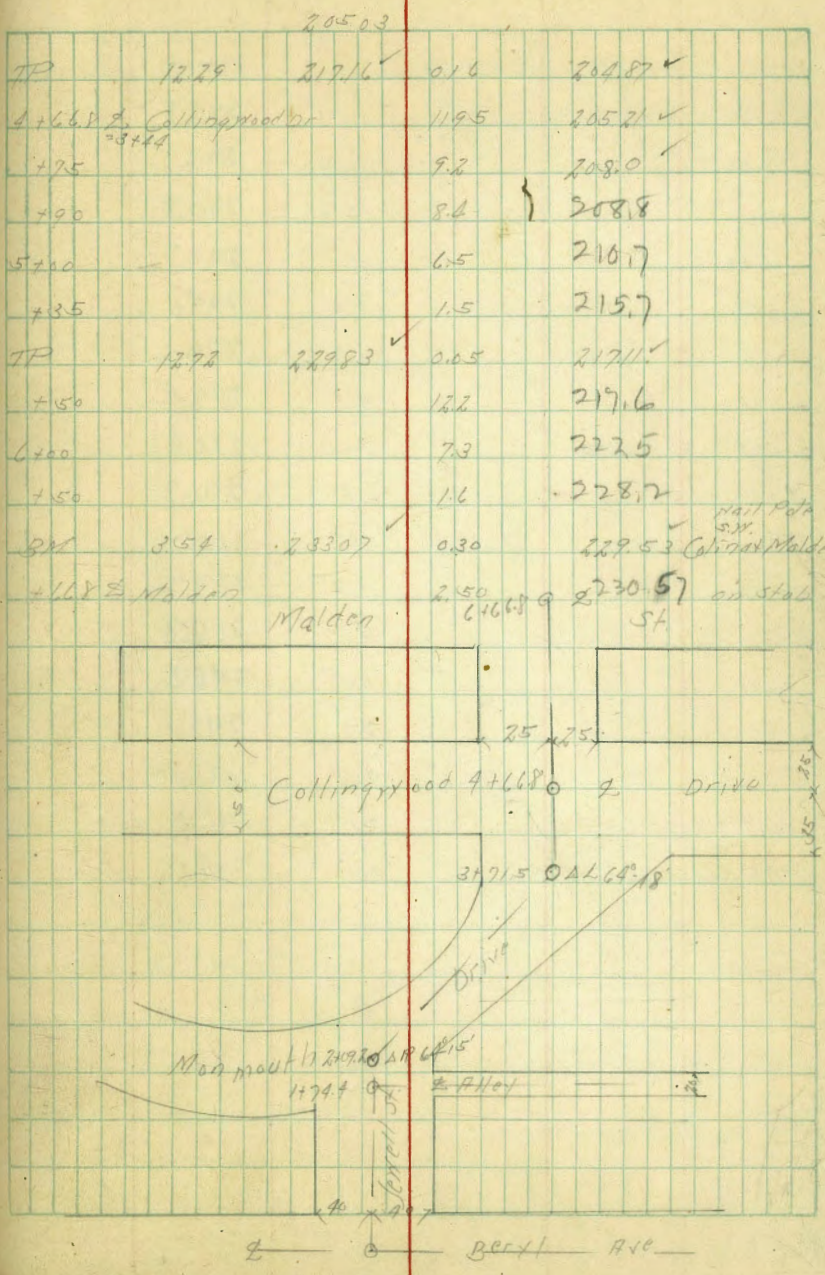 205.03
TP 12.29 217.16 ✓ 0.16 204.87 ✓
4+66.8 ℄ Collingwood Dr 11.95 205.21 ✓
=3+44
+75 9.2 208.0 ✓
+90 8.4 } 208.8
5+00 6.5 210.7
+35 1.5 215.7
TP 12.72 229.83 ✓ 0.05 217.11 ✓
+50 12.2 217.6
6+00 7.3 222.5
+50 1.6 228.2
Nail Pole
S.W.
BM 3.54 233.07 ✓ 0.30 229.53 ✓ Colin & Malden
+66.8 ℄ Malden 2.50 230.57 on stab
Malden 6+66.8 ℄ St
25 25
50' Collingwood 4+66.8 ℄ Drive 35 35
3+71.5 Δ L 64°-18'
Drive
Monmouth 2+09.2 Δ R 64°15'
1+74.4 ℄ Alley 20
Jewell St.
40 40
℄ Beryl Ave